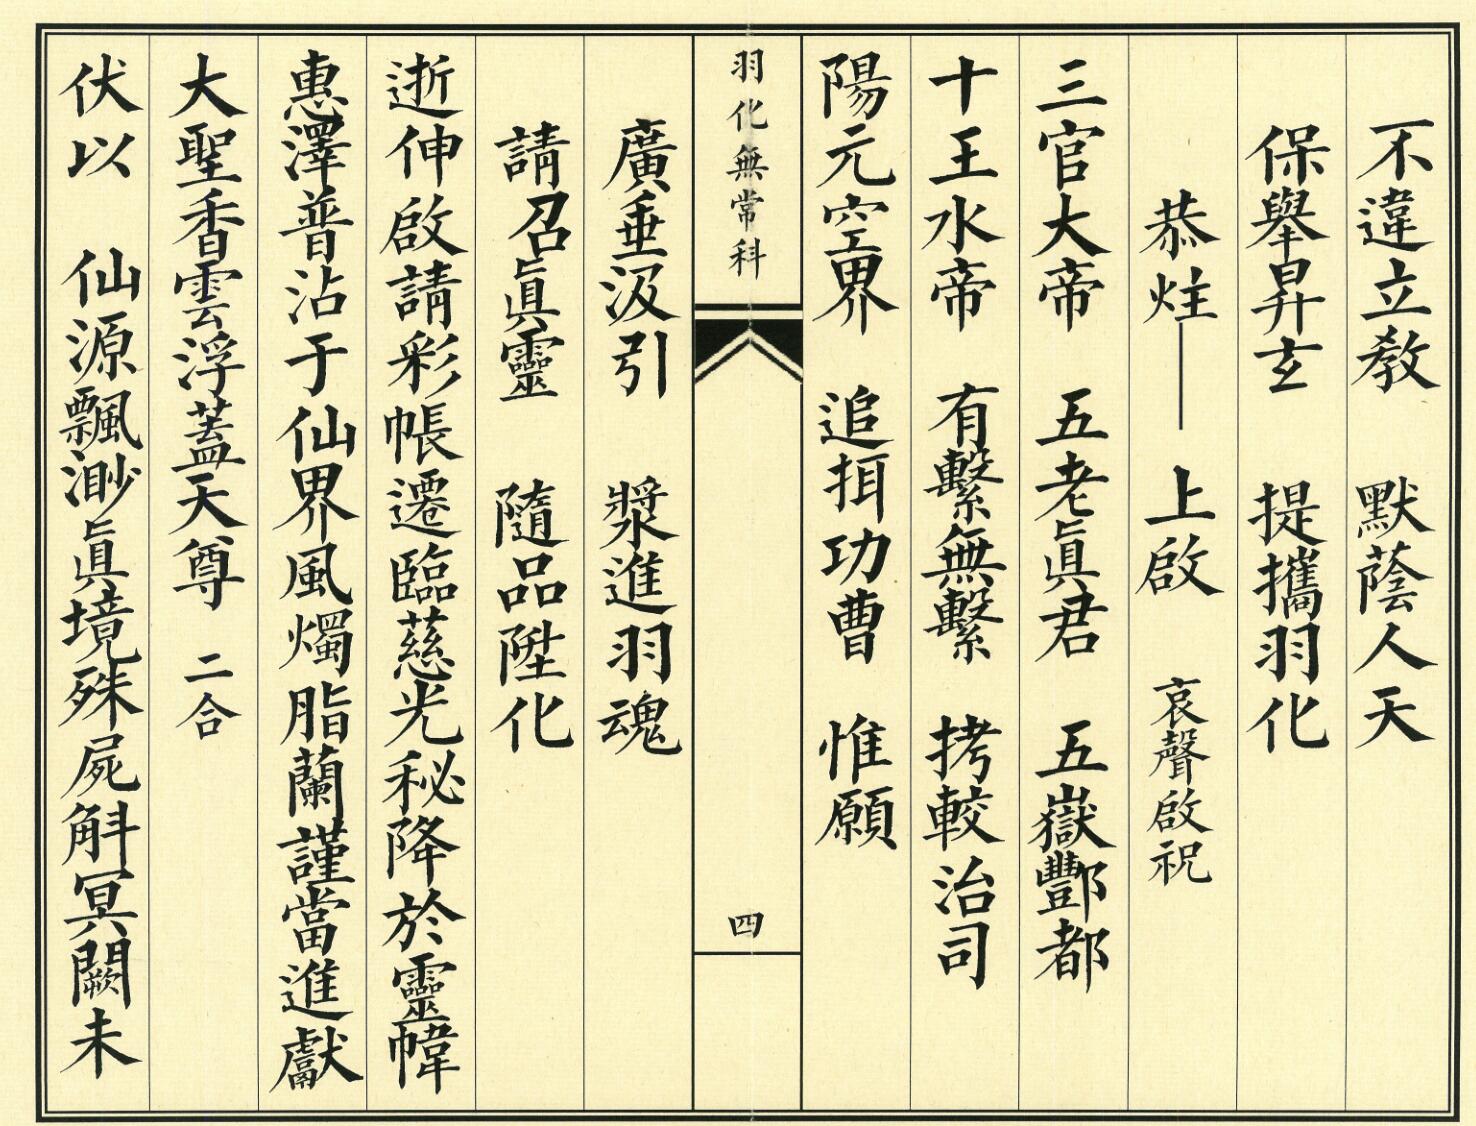 不違立教　默蔭人天
保舉昇玄　提攜羽化
恭炷――上啟　哀聲啟祝
三官大帝　五老眞君　五嶽酆都
十王水帝　有繫無繫　拷較治司
陽元空界　追拑功曹　惟願
羽化無常科
四
廣垂汲引　漿進羽魂
請召眞靈　隨品陞化
逝伸啟請彩帳遷臨慈光秘降於靈幃
惠澤普沾于仙界風燭脂蘭謹當進獻
大聖香雲浮蓋天尊　二合
伏以　仙源飄渺眞境殊屍斛冥闕未